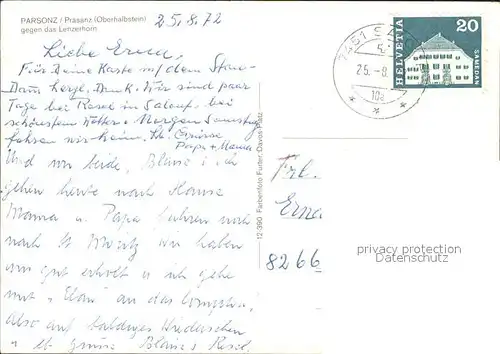 PARSONZ / Prasanz (Oberhalbstein)
gegen das Lenzerhorn
25.8.72
Liebe Erna,
Für Deine Karte mit dem Stau-
Dam herzl. Dank. Wir sind paar
Tage bei Resel in Salouf bei
schönstem Wetter + Morgen Samstag
fahren wir heim. Hl. Grüsse
Papa + Mama
Und wir beide, Blaise u. ich
gehen heute nach Hause
Mama u. Papa fahren noch
nach St. Moritz. Wir haben
uns gut erholt u. ich gehe
mit "Elan" an das
Also auf baldiges Wiedersehen
u. lb. Grüsse Blaise + Resel
12-390 Farbenfoto Furter, Davos-Platz
7451 SA
25.-8.
10a
HELVETIA
20
SAMEDAN
Frl.
Erna
8266
privacy protection
Datenschutz